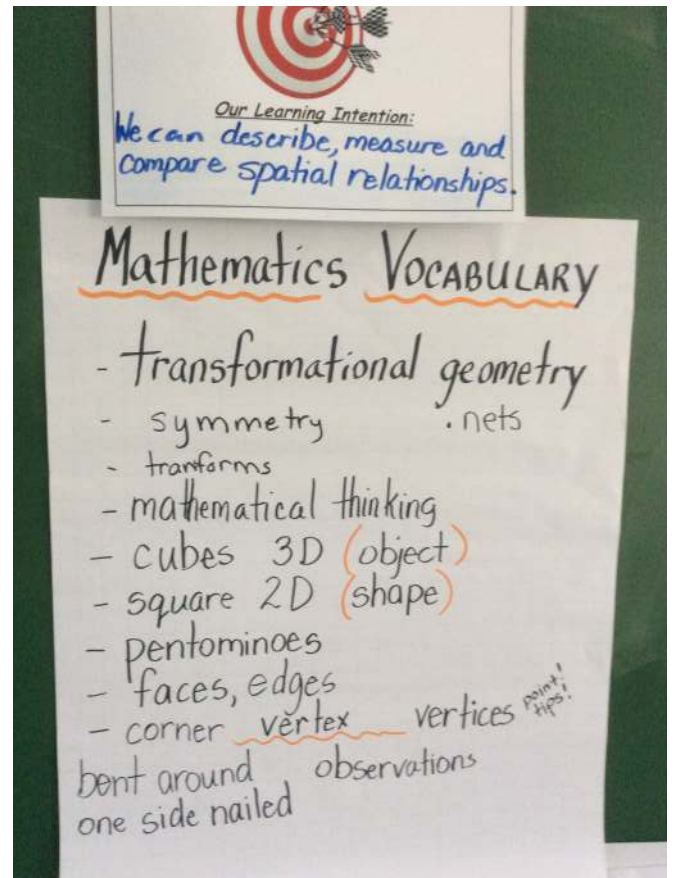 Our Learning Intention:
We can describe, measure and
compare spatial relationships.
Mathematics VOCABULARY
- transformational geometry
- symmetry . nets
- tranforms
- mathematical thinking
- cubes 3D (object)
- square 2D (shape)
- pentominoes
- faces, edges
- corner vertex vertices point! tips!
bent around observations
one side nailed